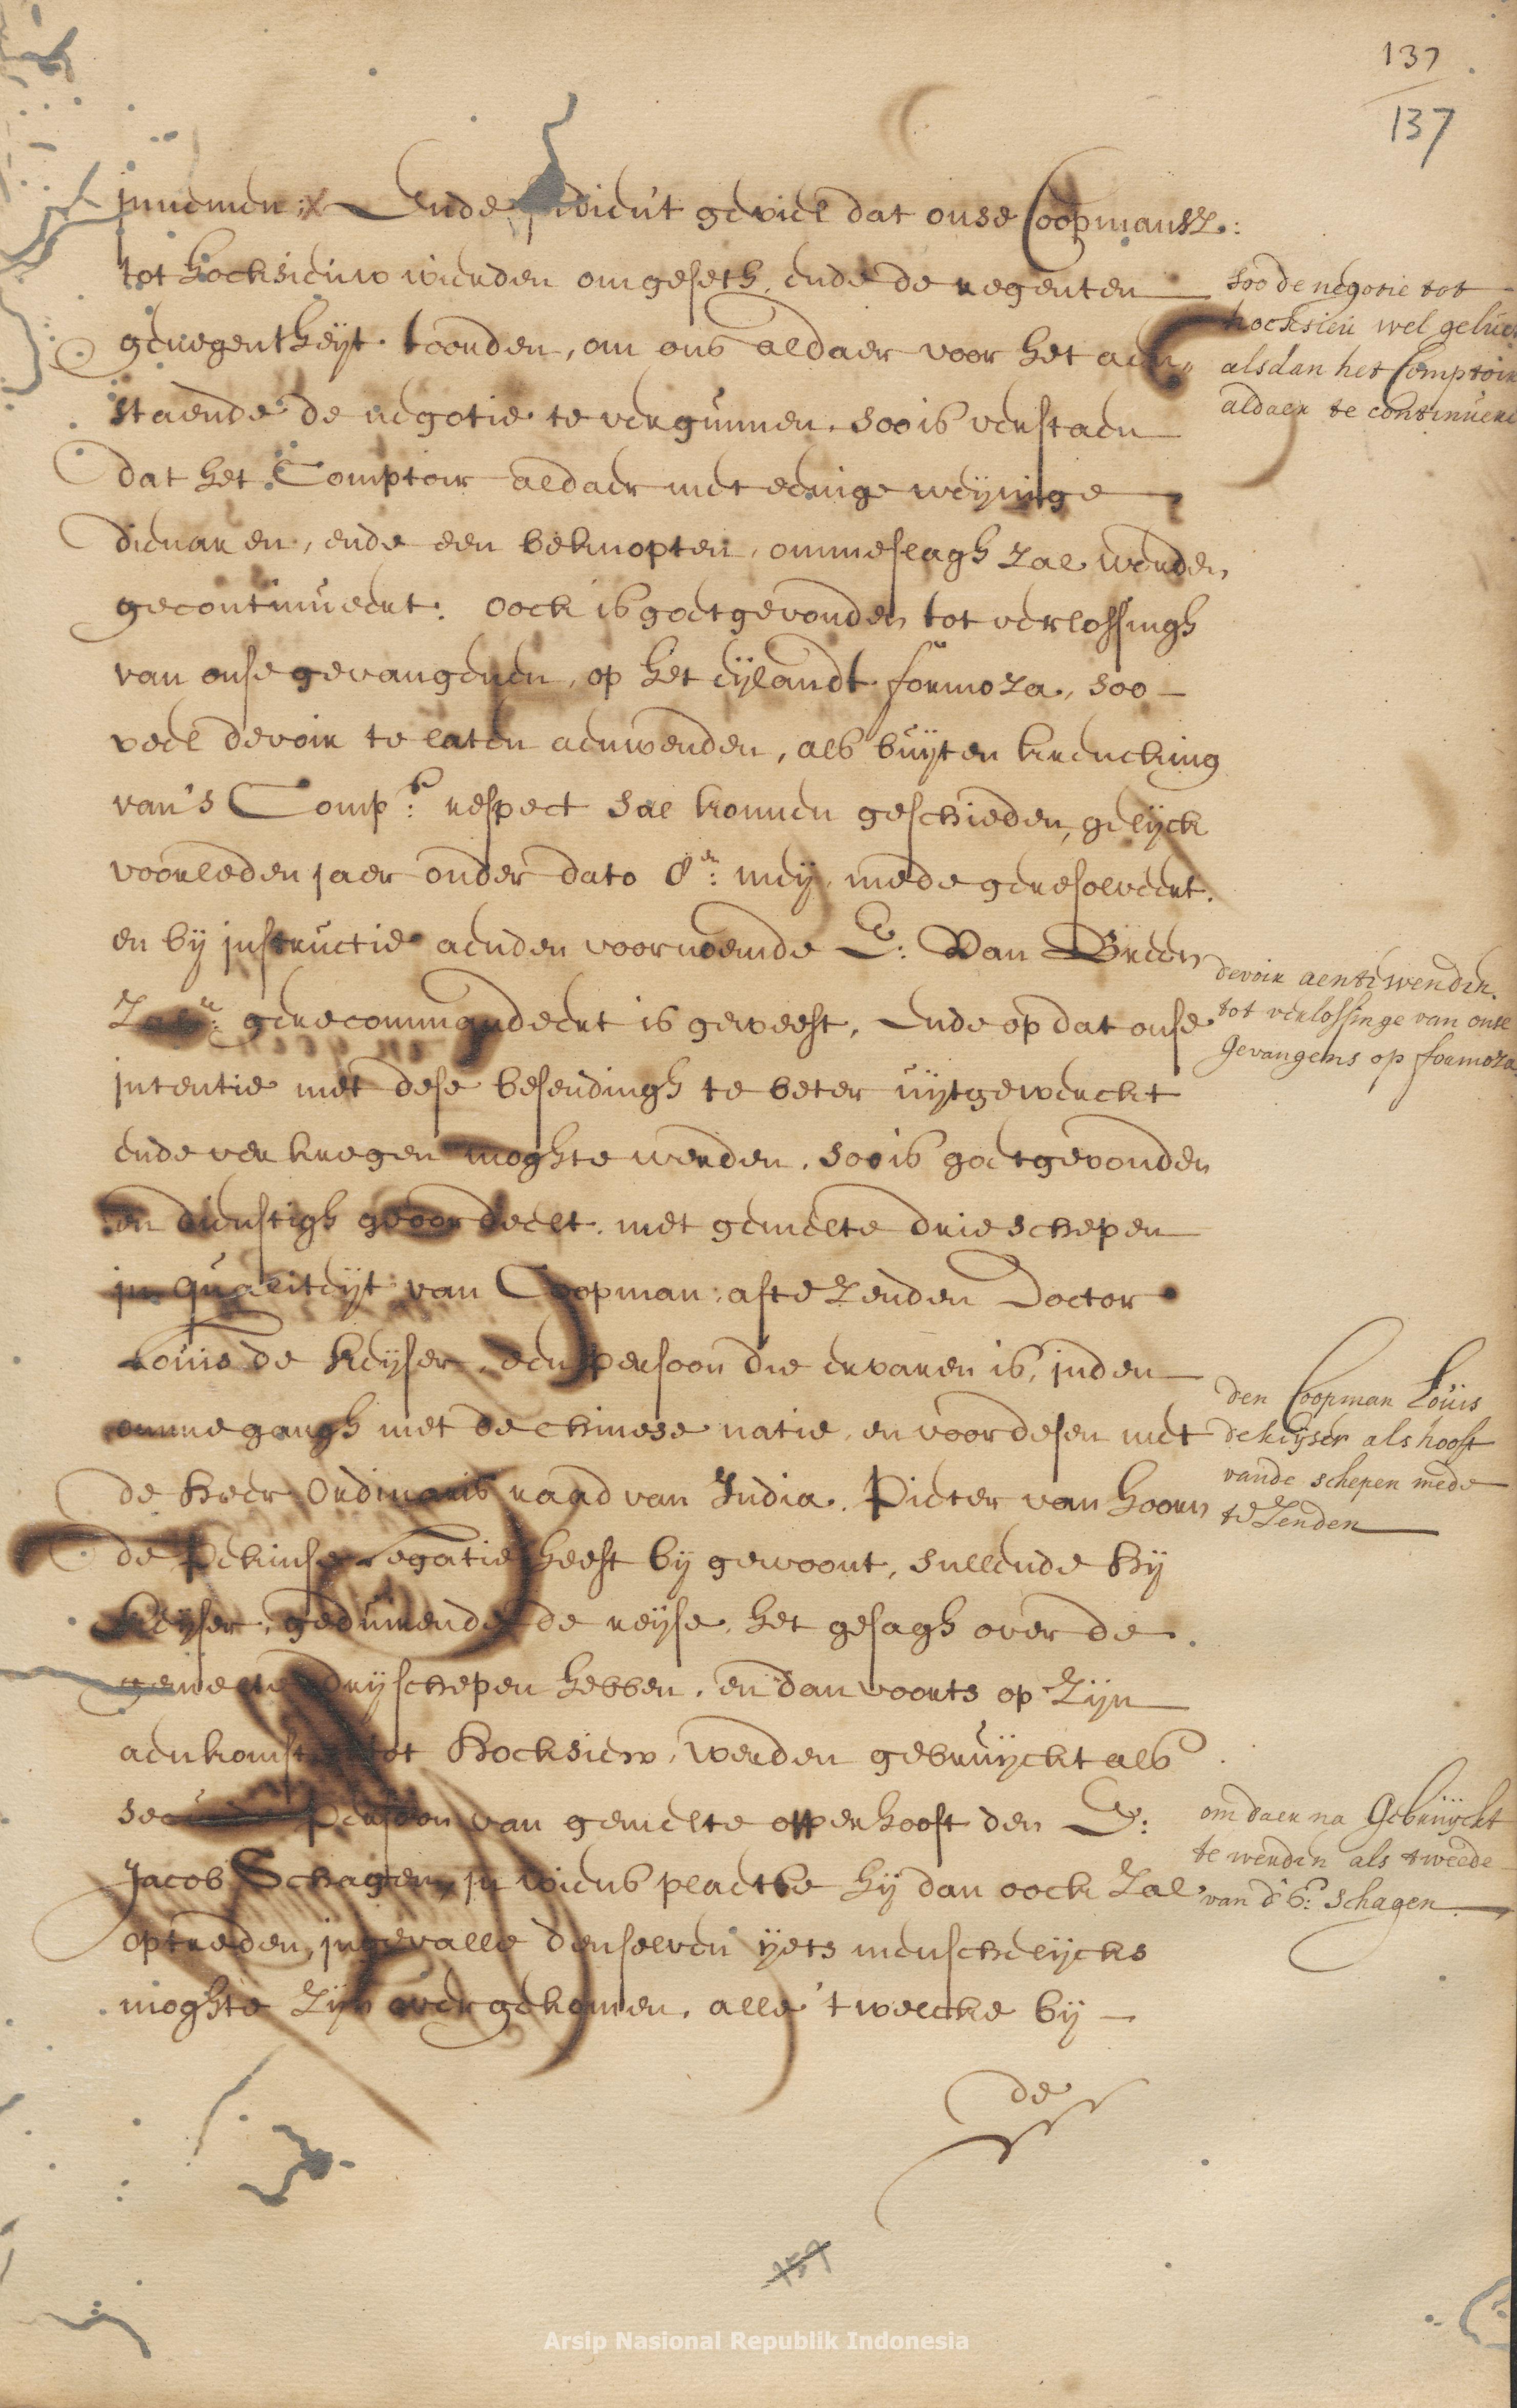 137
137
innemen: Ende wiert geviel dat onse Coopmansz:
tot hocksieuw wierden omgeseth, ende de regenten
genegentheijt toonden, om ons aldaer voor het aen„
staende de negotie te vergunnen, soo is verstaen
dat het Comptoir aldaer met eenige weijnige
dienaren, ende een beknopten, ommeslagh zal werden,
gecontinueert: oock is goetgevonden tot verlossingh
van onse gevangenen, op het eijlandt formoza, soo
veel devoir te laten aenwenden, als buijten krencking
van's Comp:s respect sal konnen geschieden, gelijck
voorleden jaer onder dato 8:en meij, mede geresolveert.
en bij instructie aenden voornoemde E: Van Breen
gerecommandeert is geweest, Ende op dat onse
intentie met dese besendingh te beter uijtgewerckt
ende verkregen moghte werden, soo is goetgevonden
en dienstigh geoordeelt, met gemelte drie schepen
in qualiteijt van Coopman, afte Zenden Doctor
Louis de Keijser, een persoon die ervaren is, inden
ommegangh met de chinese natie, en voordesen met
de heer Ordinaris raad van India. Pieter van hoorn
de Pekinse Legatie heeft bij gewoont, sullende hij
Keijser, gedurende de reijse, het gesagh over de
gemelte drij schepen hebben, en dan voorts op Zijn
aenkomst tot hocksiew, werden gebruijckt als
persoon van gemelte opperhooft den E:
Jacob Schagen, in wiens plaetse hij dan oock Zal
optreden, ingevalle denselven ijets menschelijcks
moghte Zijn overgekomen, alle 't welcke bij
de
soo de negotie tot
hocksieu wel geluct
alsdan het Comptoir
aldaer te continuere
devoir aente wenden.
tot verlossinge van onse
gevangens op formoza
den Coopman Louis
de keijser als hooft
vande schepen mede
te Zenden
om daer na Gebruijckt
te werden als tweede
van d' E: Schagen
Arsip Nasional Republik Indonesia